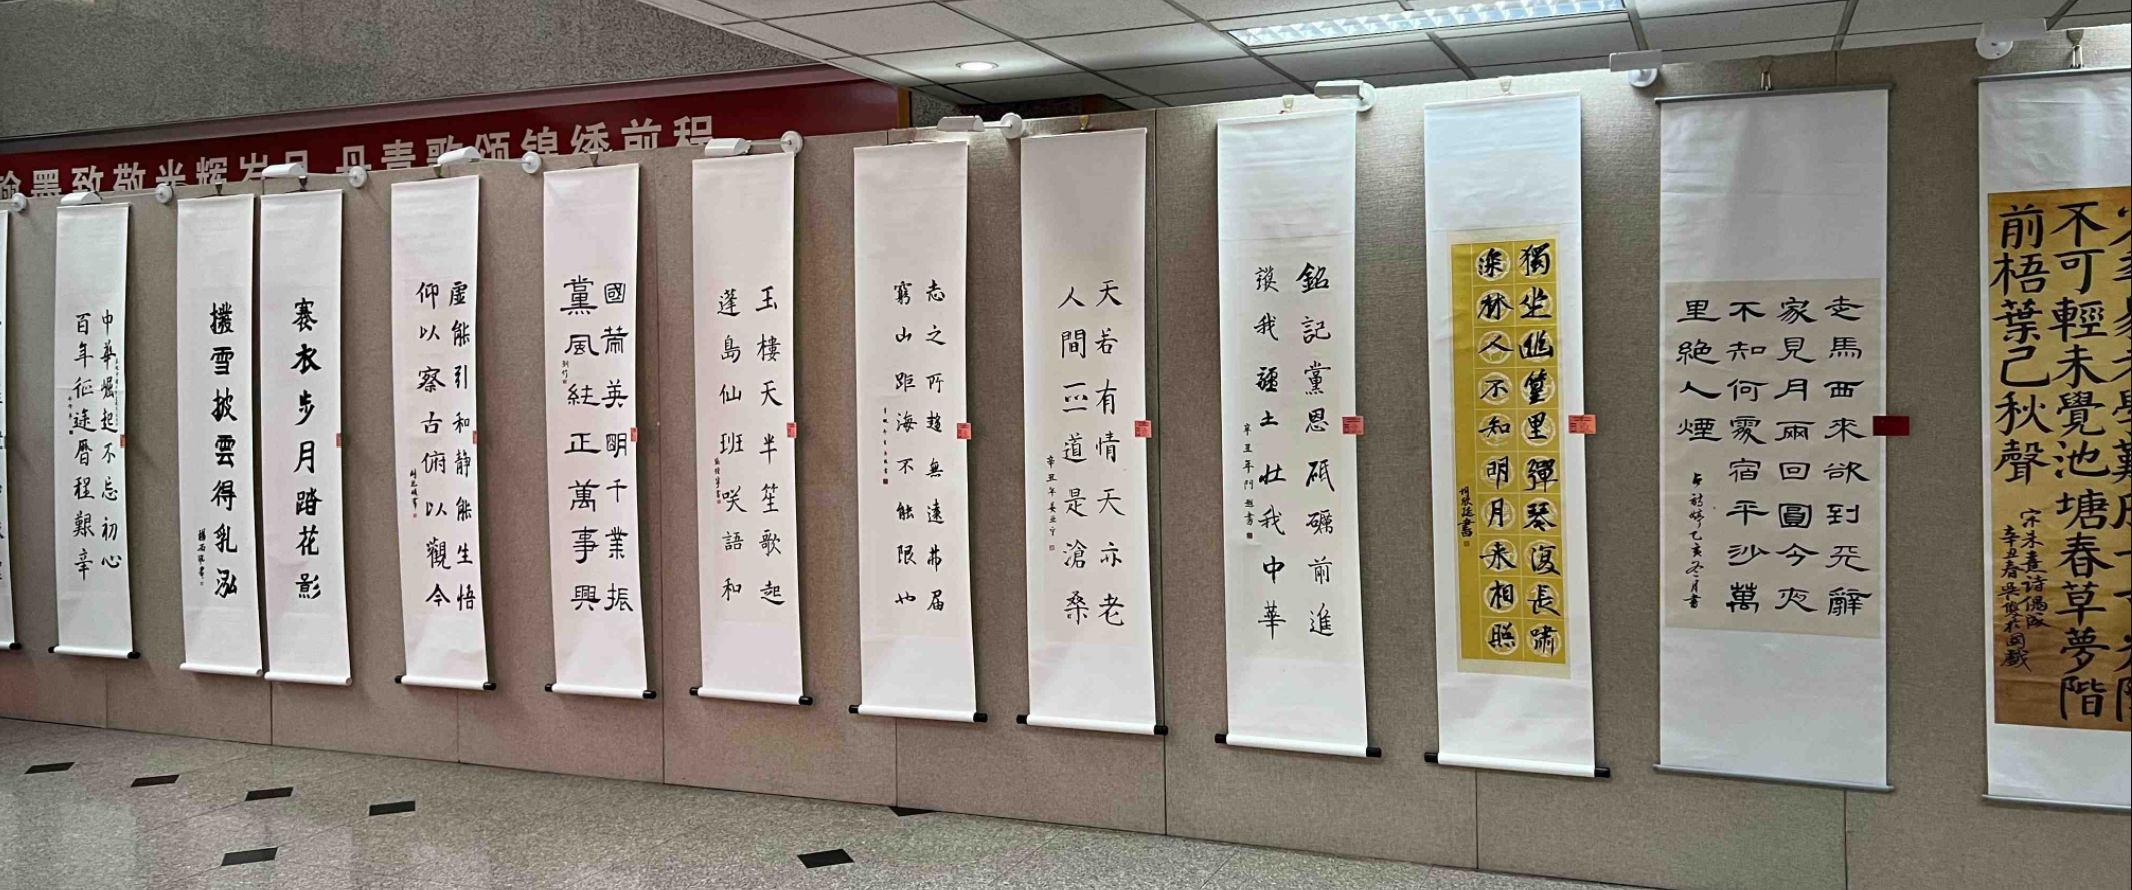 翰墨致敬光辉岁月 丹青歌颂锦绣前程
不可輕未覺池塘春草夢階
前梧葉已秋聲
宋朱熹詩偶成
走馬西來欲到天辭
家見月兩回圓今夜
不知何處宿平沙萬
里絶人煙
獨坐幽篁里彈琴復長嘯
深林人不知明月来相照
銘記黨恩砥礪前進
護我疆土壮我中華
辛丑年
天若有情天亦老
人間正道是滄桑
辛丑年
志之所趨無遠弗届
窮山距海不能限也
玉樓天半笙歌起
蓬島仙班咲語和
國萧英明千業振
黨風純正萬事興
虚能引和静能生悟
仰以察古俯以觀今
褰衣步月踏花影
撥雪披雲得乳泓
中華崛起不忘初心
百年征途曆程艱辛